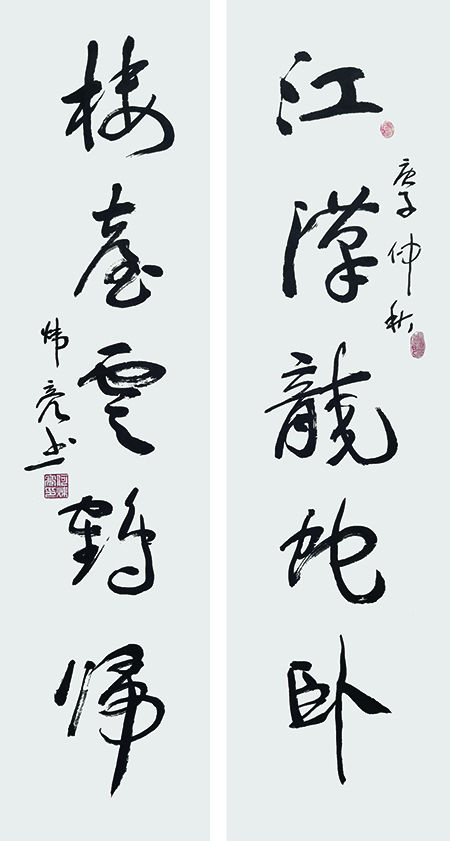 江漢龍蛇卧
庚子仲秋
楼臺雲鶴歸
炜亮书